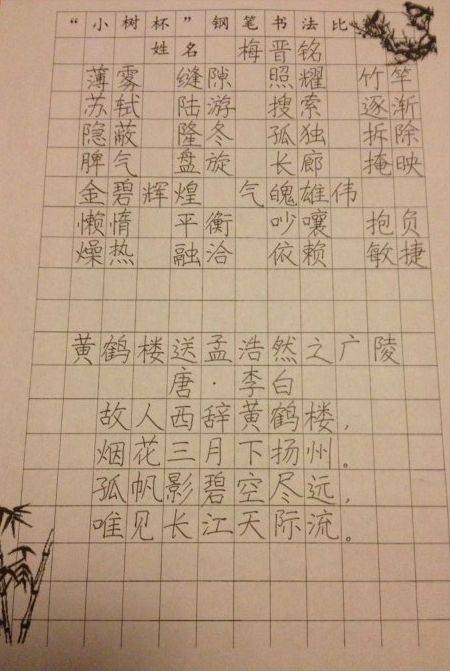 “小树杯”钢笔书法比
姓名 梅晋铭
薄雾 缝隙 照耀 竹竿
苏轼 陆游 搜索 逐渐
隐蔽 隆冬 孤独 拆除
脾气 盘旋 长廊 掩映
金碧辉煌 气魄雄伟
懒惰 平衡 吵嚷 抱负
燥热 融洽 依赖 敏捷
黄鹤楼送孟浩然之广陵
唐·李白
故人西辞黄鹤楼,
烟花三月下扬州。
孤帆影碧空尽远,
唯见长江天际流。